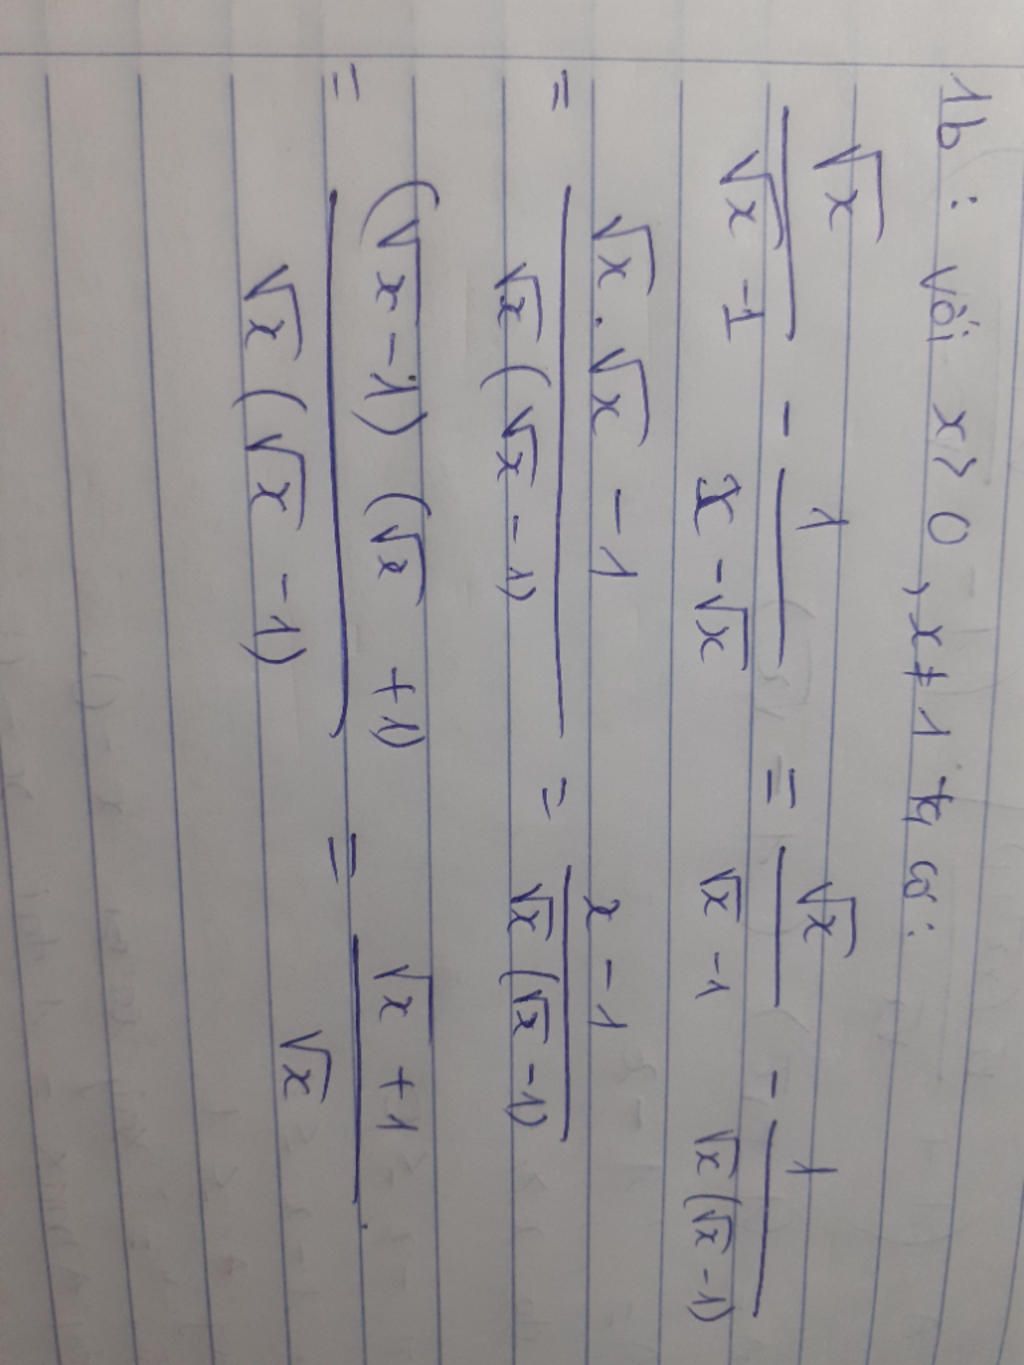 1b : Với x > 0 , x ≠ 1 ta có :
√x / (√x - 1) - 1 / (x - √x) = √x / (√x - 1) - 1 / (√x (√x - 1))
= (√x . √x - 1) / (√x (√x - 1)) = (x - 1) / (√x (√x - 1))
= ((√x - 1) (√x + 1)) / (√x (√x - 1)) = (√x + 1) / √x .